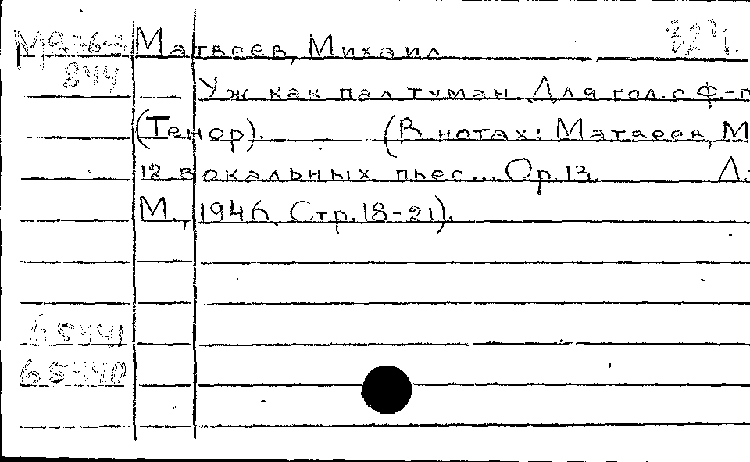 Матвеев, Михаил
844
Уж как пал туман. Для гол. с ф-п
(Тенор). (В нотах: Матвеев, М
12 вокальных пьес... Op. 13. Л.
М., 1946. Стр. 18-21).
65441
65440